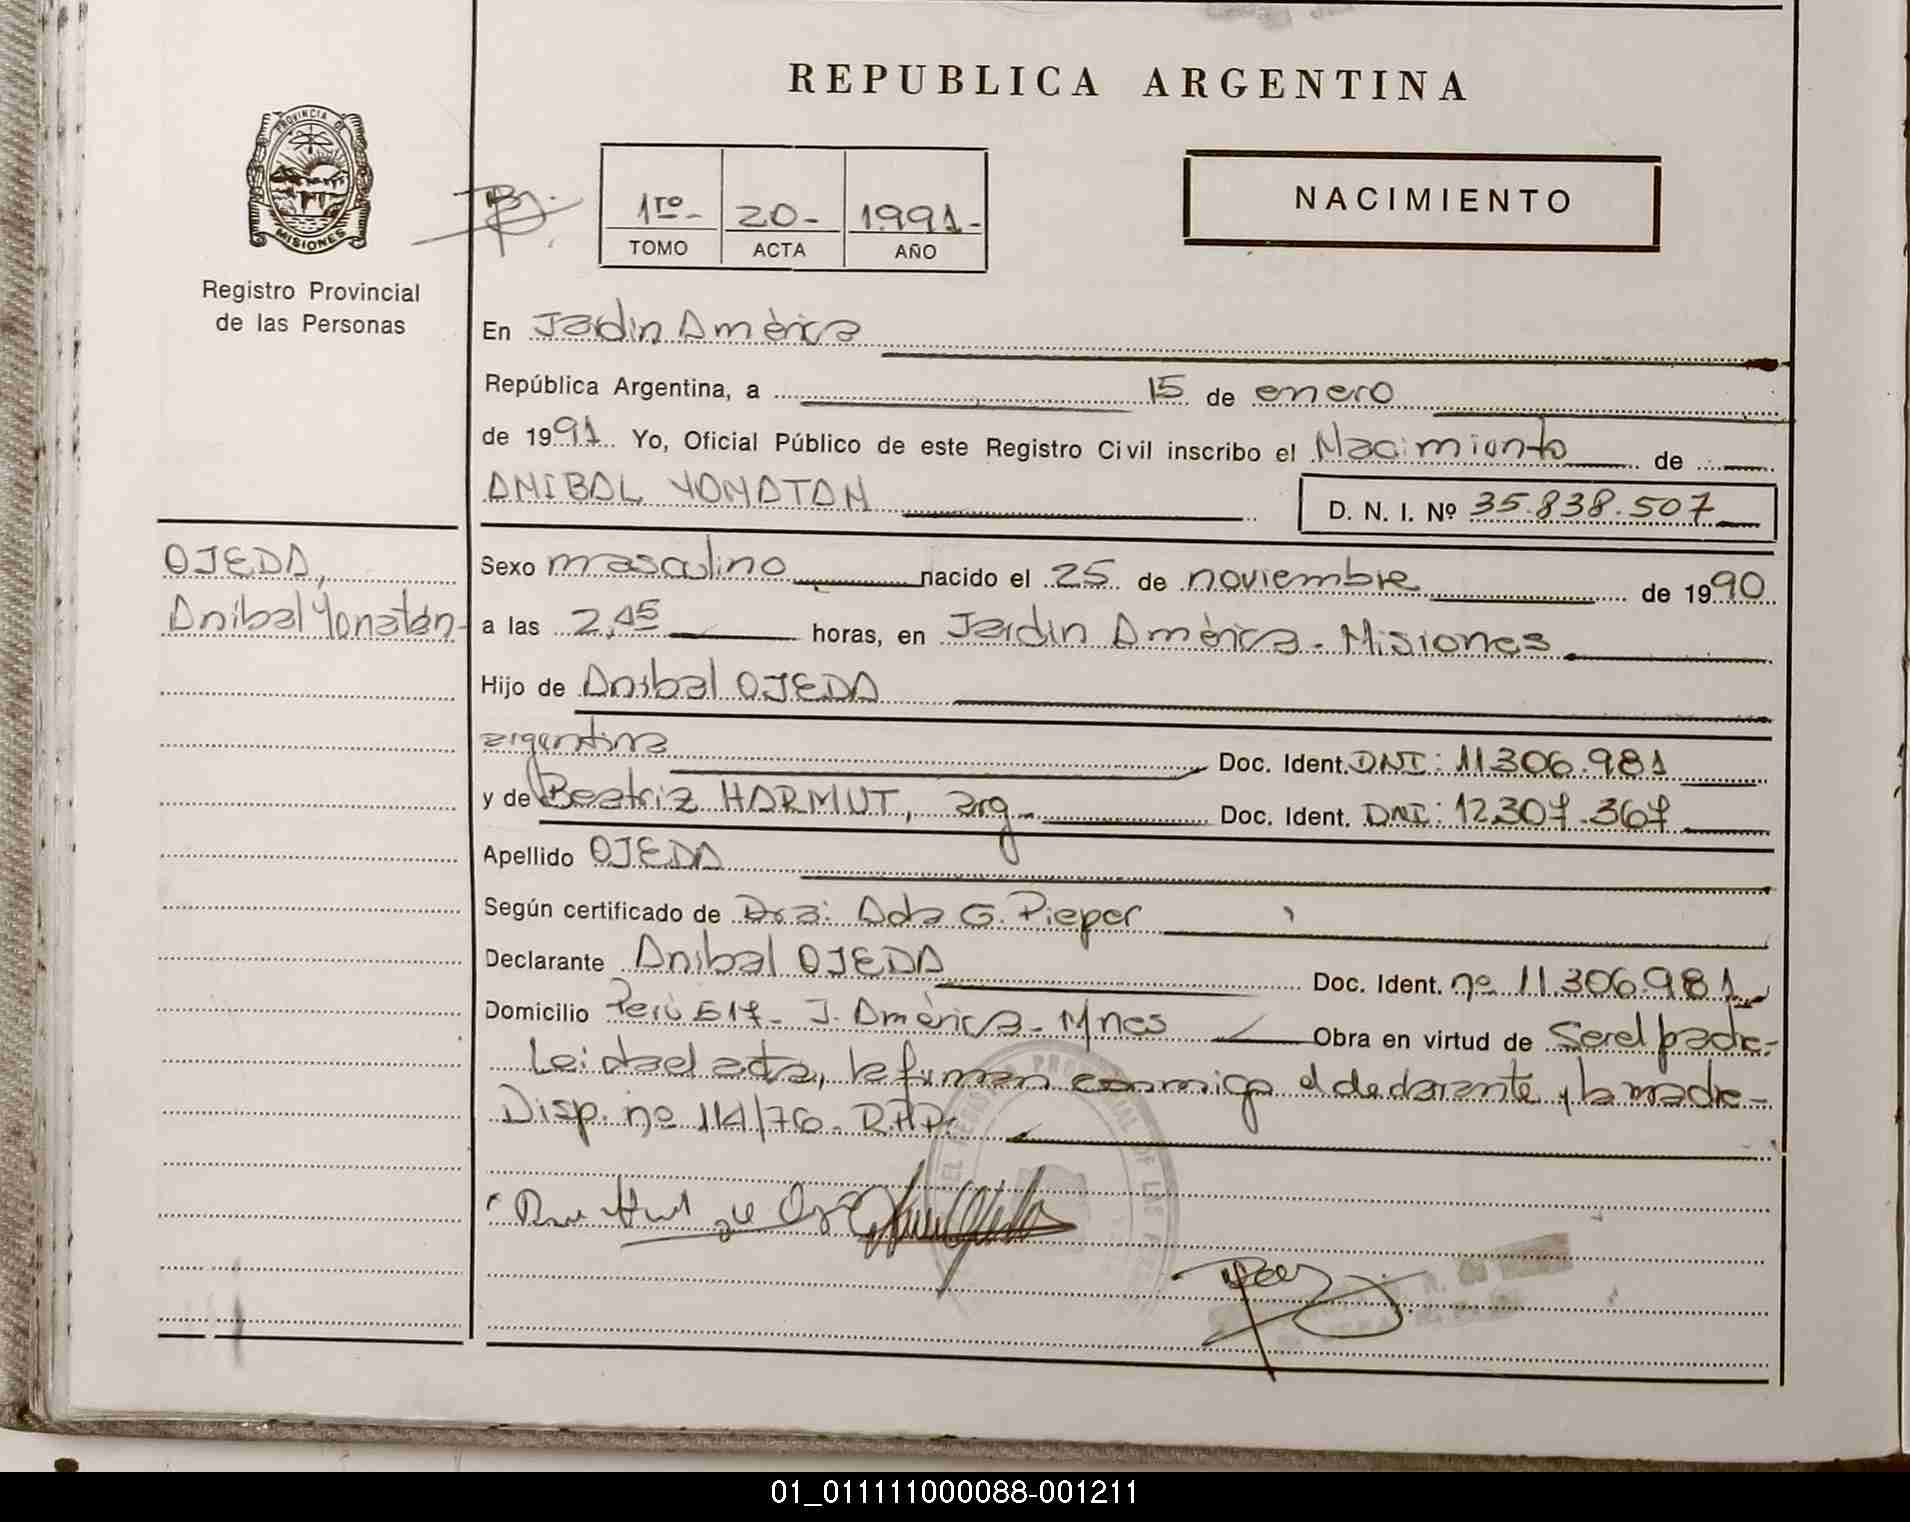 REPUBLICA ARGENTINA
PROVINCIA DE
MISIONES
Registro Provincial
de las Personas
1ro - 20 - 1991 -
TOMO ACTA AÑO
NACIMIENTO
En Jardín América
República Argentina, a 15 de enero
de 1991 Yo, Oficial Público de este Registro Civil inscribo el Nacimiento de
ANIBAL YONATAN
D. N. I. Nº 35.838.507
OJEDA,
Aníbal Yonatán -
Sexo masculino nacido el 25 de noviembre de 1990
a las 2,45 horas, en Jardín América - Misiones
Hijo de Anibal OJEDA
argentina Doc. Ident. DNI: 11.306.981
y de Beatriz HARMUT, arg - Doc. Ident. DNI: 12.307.367
Apellido OJEDA
Según certificado de Dra: Ada G. Pieper
Declarante Anibal OJEDA Doc. Ident. nº 11.306.981
Domicilio Perú 617 - J. América - Mnes Obra en virtud de Ser el padre -
Leida el acta, la firman conmigo el declarante y la madre -
Disp. nº 114/76 - R.P.P.
EL REGISTRO PROVINCIAL DE LAS PERS
01_011111000088-001211